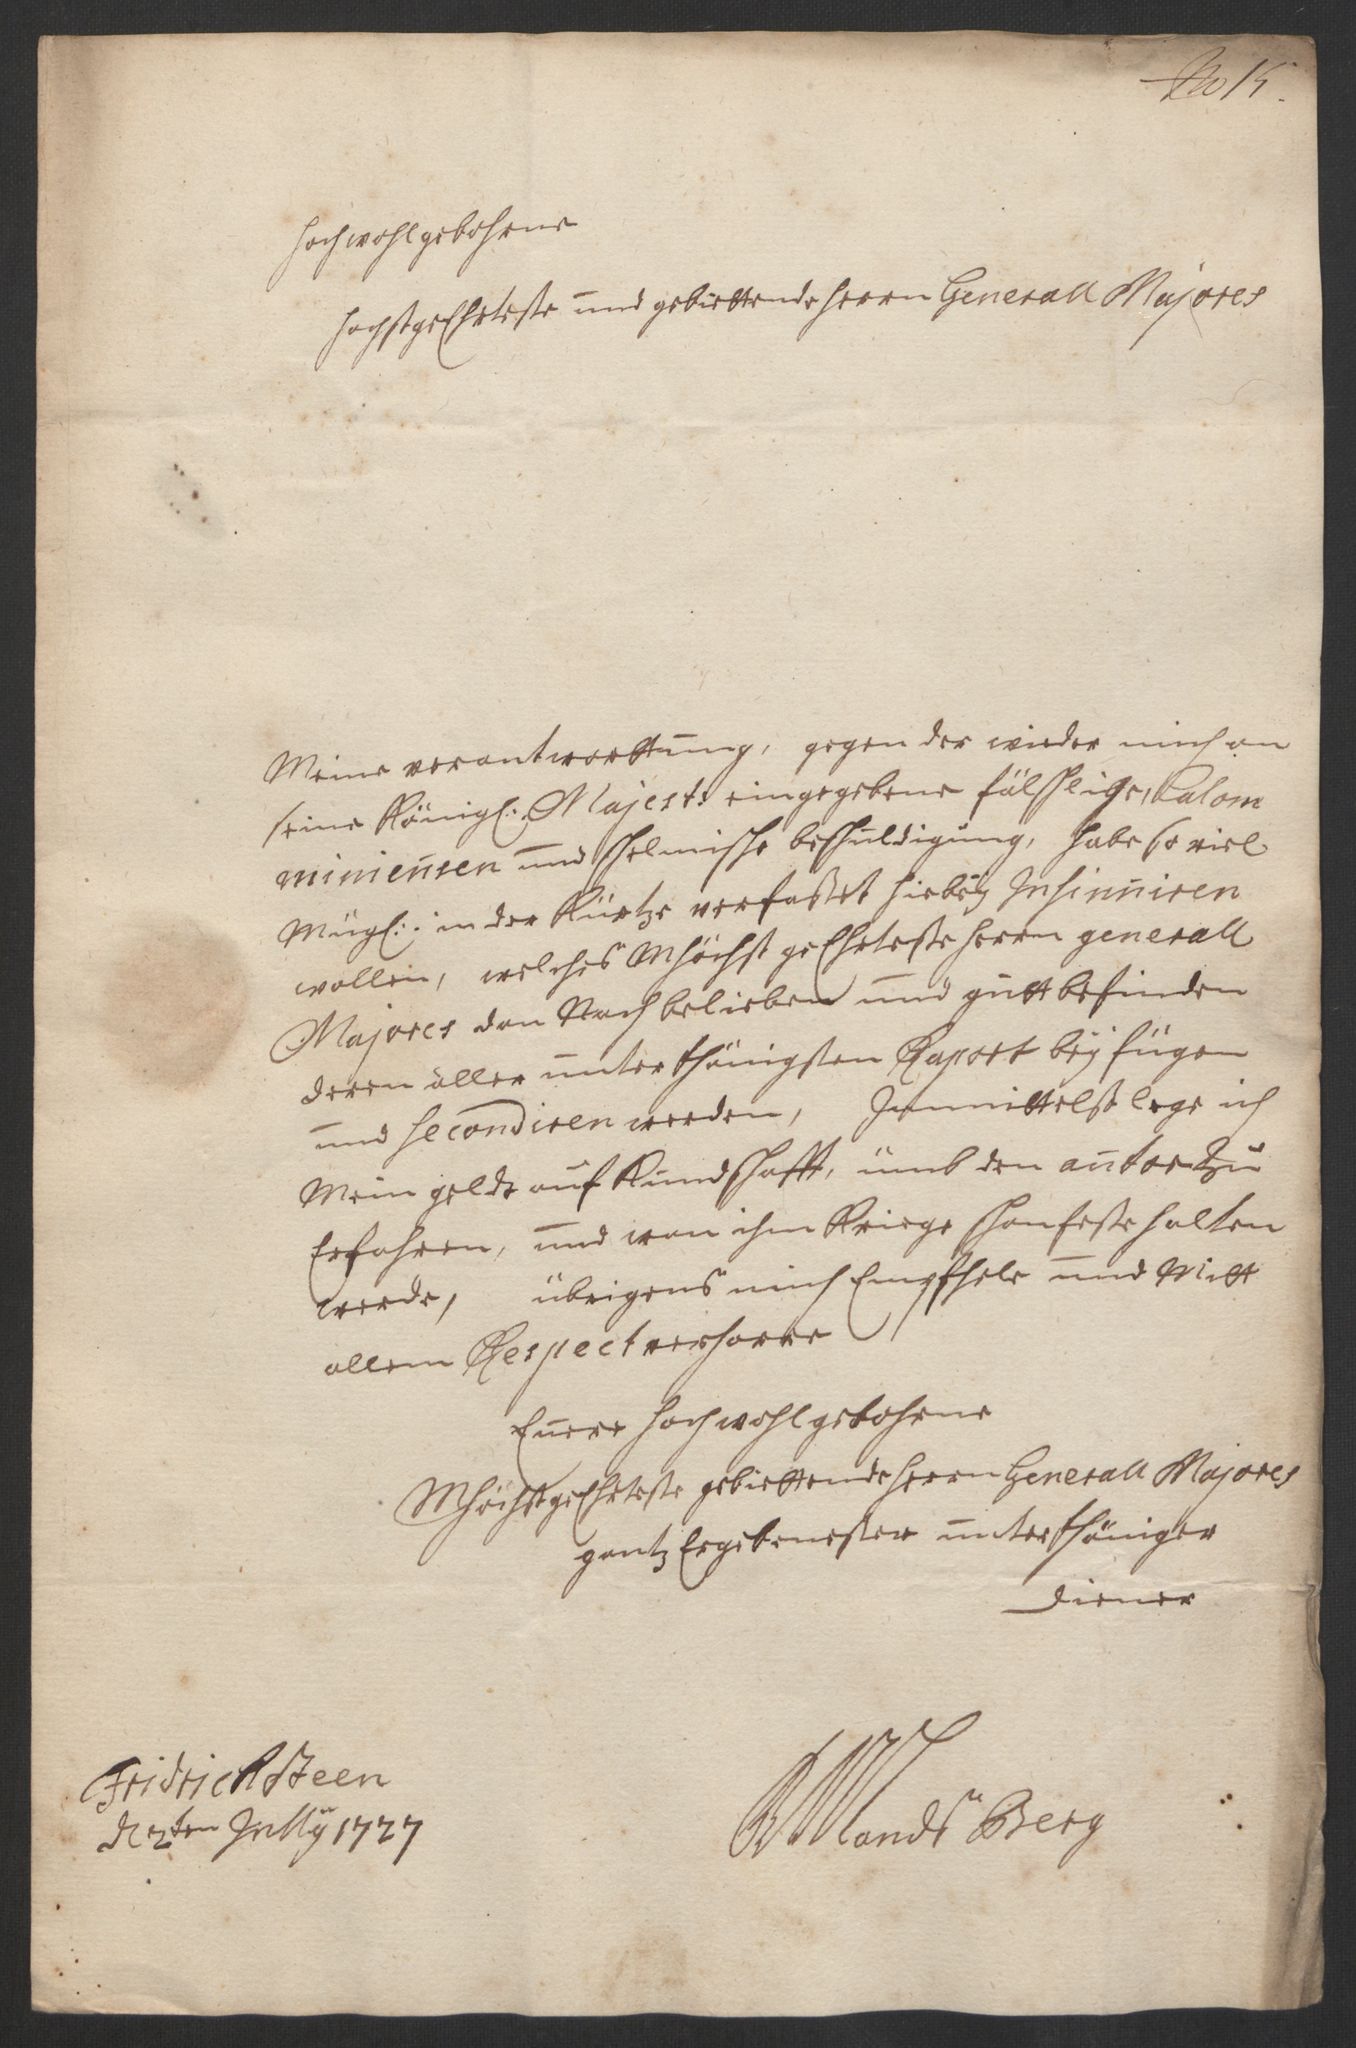 No 15.
Hochwohlgebohrne
Hochstgeehrteste und gebiettende Herrn Generall Majores
Meine verantworttung, gegen der wieder mich an
seine Königl: Majest: eingegebene fälschlige, Calom
minieusen und schelmische beschuldigung, habe so viel
Mügl: in der Kürtze verfasset hiebeÿ Insinuiren
wollen, welches Mhöchst geEhrteste Herrn generall
Majores dan Nach belieben und gutt befinden
deren aller unterthänigsten Raport beÿ fügen
und secondiren werden, Immittelst lege ich
Mein geldt auf Kundschafft, umb den autor zu
Erfahren, und wan ihm Kriege schon feste halten
werde, übrigens mich Empfhele und Mitt
allem Respect verharre
Euere Hochwohlgebohrne
Mhöchstgeehrteste gebiettende Herrn Generall Majores
gantz Ergebenester unterthäniger
diener
Fridrichsteen
d 2ten Jully 1727
Landsberg